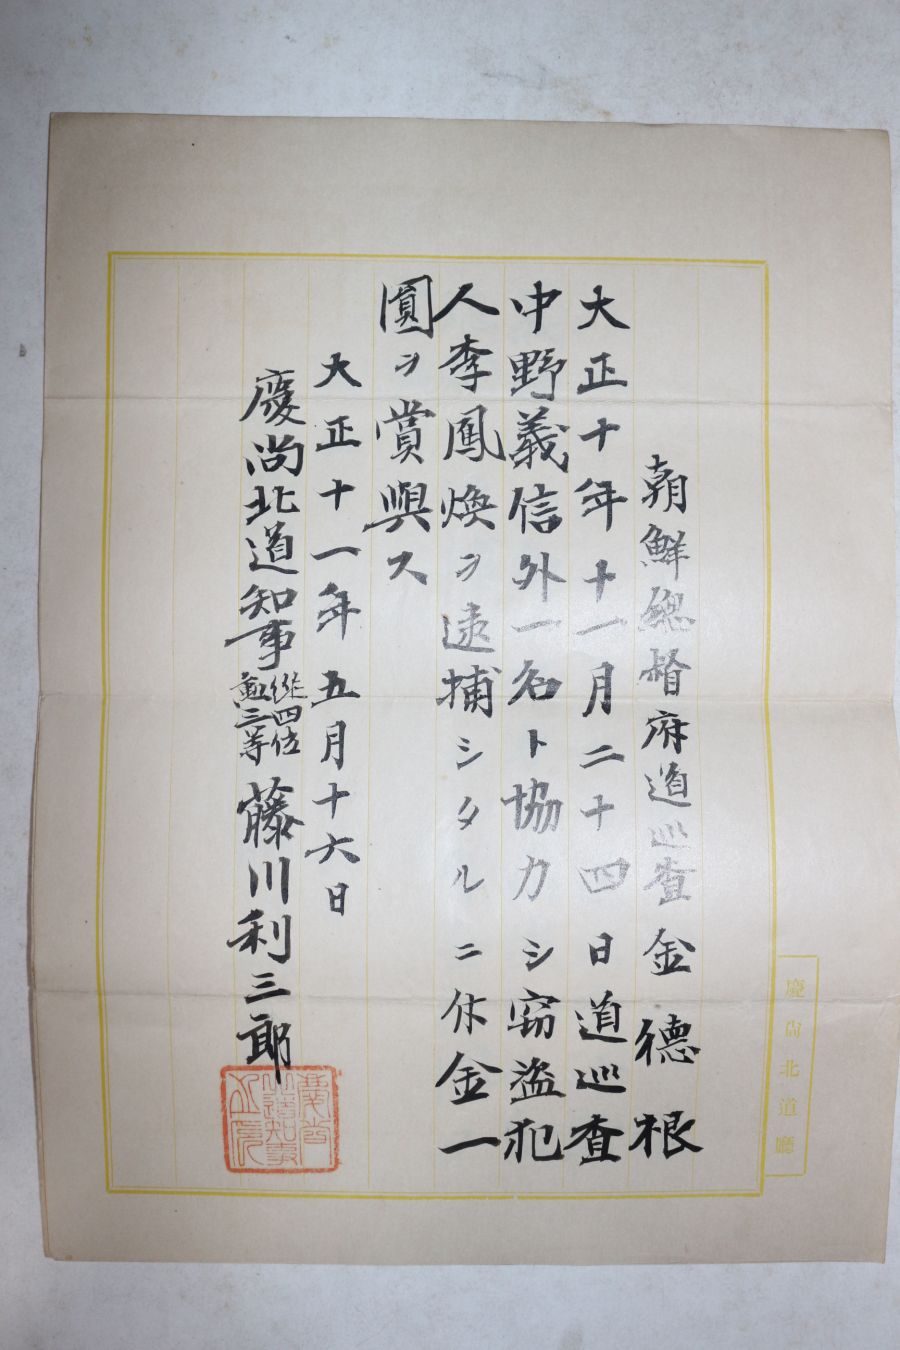 朝鮮總督府道巡査 金德根
大正十年十一月二十四日道巡査
中野義信外一名ト協力シ窃盗犯
人李鳳煥ヲ逮捕シタルニ依金一
圓ヲ賞與ス
大正十一年五月十六日
慶尚北道知事 從四位 勳三等 藤川利三郎
慶尚北道知事之印
慶尚北道廳